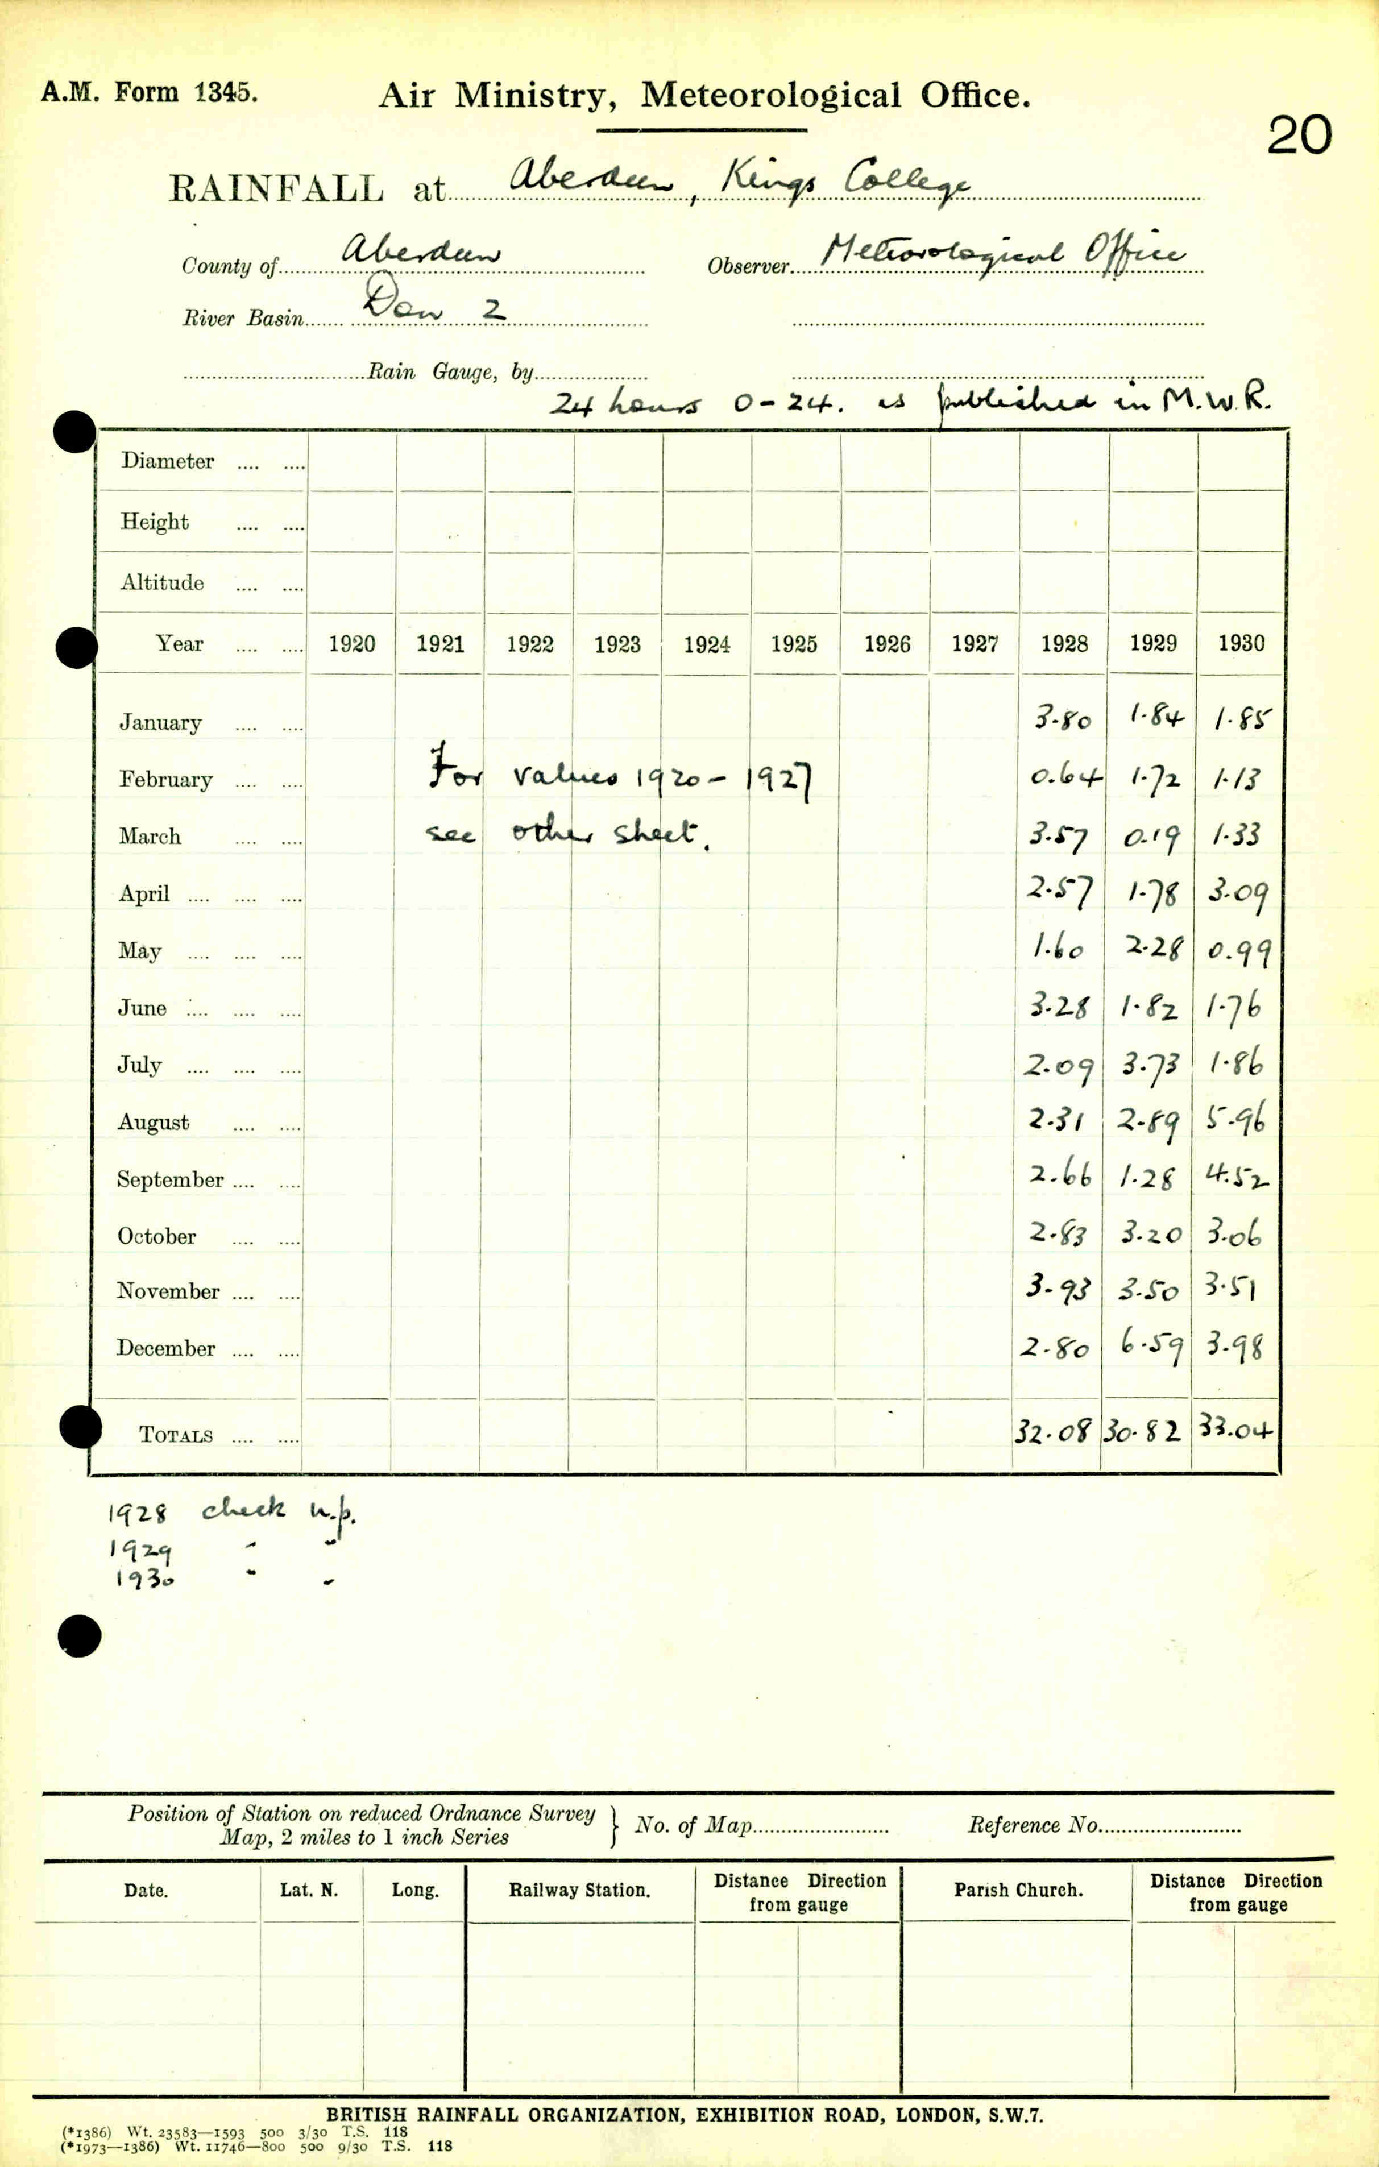 A.M. Form 1345.
Air Ministry, Meteorological Office.
20
RAINFALL at Aberdeen, Kings College
County of Aberdeen Observer Meteorological Office
River Basin Don 2
Rain Gauge, by
24 hours 0-24. as published in M.W.R.
Diameter
Height
Altitude
Year 1920 1921 1922 1923 1924 1925 1926 1927 1928 1929 1930
January 3.80 1.84 1.85
February For values 1920-1927 0.64 1.72 1.13
March see other sheet. 3.57 0.19 1.33
April 2.57 1.78 3.09
May 1.60 2.28 0.99
June 3.28 1.82 1.76
July 2.09 3.73 1.86
August 2.31 2.89 5.96
September 2.66 1.28 4.52
October 2.83 3.20 3.06
November 3.93 3.50 3.51
December 2.80 6.59 3.98
TOTALS 32.08 30.82 33.04
1928 check n.p.
1929 " "
1930 " "
Position of Station on reduced Ordnance Survey
Map, 2 miles to 1 inch Series } No. of Map Reference No.
Date. Lat. N. Long. Railway Station. Distance Direction from gauge Parish Church. Distance Direction from gauge
BRITISH RAINFALL ORGANIZATION, EXHIBITION ROAD, LONDON, S.W.7.
(*1386) Wt. 23583—1593 500 3/30 T.S. 118
(*1973—1386) Wt. 11746—800 500 9/30 T.S. 118